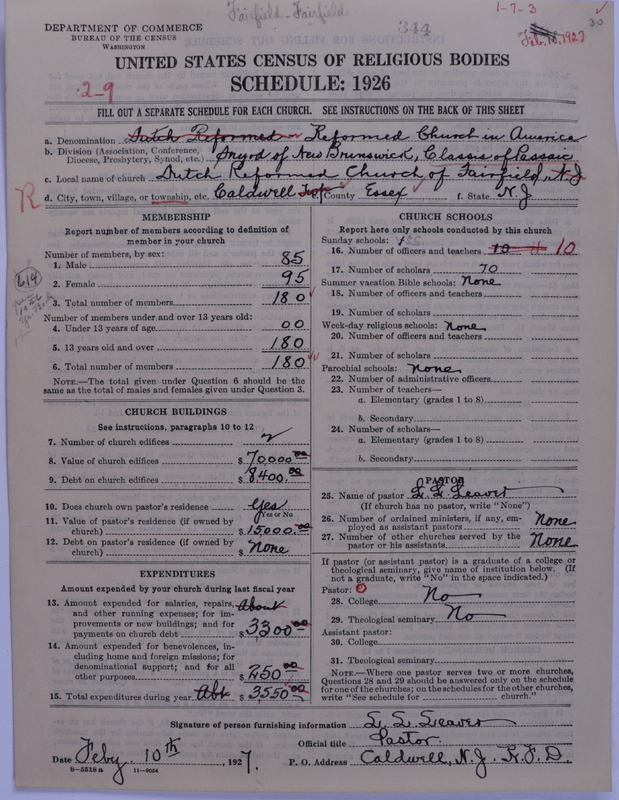 Fairfield - Fairfield.
344
1-7-3
30
DEPARTMENT OF COMMERCE
BUREAU OF THE CENSUS
WASHINGTON
Feb. 18, 1927
UNITED STATES CENSUS OF RELIGIOUS BODIES
SCHEDULE: 1926
2-9
FILL OUT A SEPARATE SCHEDULE FOR EACH CHURCH. SEE INSTRUCTIONS ON THE BACK OF THIS SHEET
a. Denomination Dutch Reformed Reformed Church in America
b. Division (Association, Conference, Diocese, Presbytery, Synod, etc.) Synod of New Brunswick, Classis of Passaic
c. Local name of church Dutch Reformed Church of Fairfield, N.J
R
d. City, town, village, or township, etc. Caldwell Twp. County Essex f. State N.J
MEMBERSHIP
Report number of members according to definition of
member in your church
Number of members, by sex:
1. Male 85
2. Female 95
3. Total number of members 180
614
Number of members under and over 13 years old:
4. Under 13 years of age 00
5. 13 years old and over 180
6. Total number of members 180
NOTE.—The total given under Question 6 should be the
same as the total of males and females given under Question 3.
CHURCH BUILDINGS
See instructions, paragraphs 10 to 12
7. Number of church edifices 2
8. Value of church edifices $ 70,000.00
9. Debt on church edifices $ 8400.00
10. Does church own pastor's residence Yes
Yes or No
11. Value of pastor's residence (if owned by
church) $ 15,000.00
12. Debt on pastor's residence (if owned by
church) $ None
EXPENDITURES
Amount expended by your church during last fiscal year
13. Amount expended for salaries, repairs, About
and other running expenses; for im-
provements or new buildings; and for
payments on church debt $ 3300.00
14. Amount expended for benevolences, in-
cluding home and foreign missions; for
denominational support; and for all
other purposes $ 250.00
15. Total expenditures during year Abt $ 3550.00
CHURCH SCHOOLS
Report here only schools conducted by this church
Sunday schools: 1
16. Number of officers and teachers 10 11 10
17. Number of scholars 70
Summer vacation Bible schools: None
18. Number of officers and teachers
19. Number of scholars
Week-day religious schools: None
20. Number of officers and teachers
21. Number of scholars
Parochial schools: None
22. Number of administrative officers
23. Number of teachers—
a. Elementary (grades 1 to 8)
b. Secondary
24. Number of scholars—
a. Elementary (grades 1 to 8)
b. Secondary
PASTOR
25. Name of pastor L. L. Leaver
(If church has no pastor, write "None")
26. Number of ordained ministers, if any, em-
ployed as assistant pastors None
27. Number of other churches served by the
pastor or his assistants None
If pastor (or assistant pastor) is a graduate of a college or
theological seminary, give name of institution below. (If
not a graduate, write "No" in the space indicated.)
Pastor:
28. College No
29. Theological seminary No
Assistant pastor:
30. College
31. Theological seminary
NOTE.—Where one pastor serves two or more churches,
Questions 28 and 29 should be answered only on the schedule
for one of the churches; on the schedules for the other churches,
write "See schedule for church."
Signature of person furnishing information L. L. Leaver
Official title Pastor
Date Feby 10th, 1927. P. O. Address Caldwell, N.J. R.F.D.
8-5518 a 11-9054